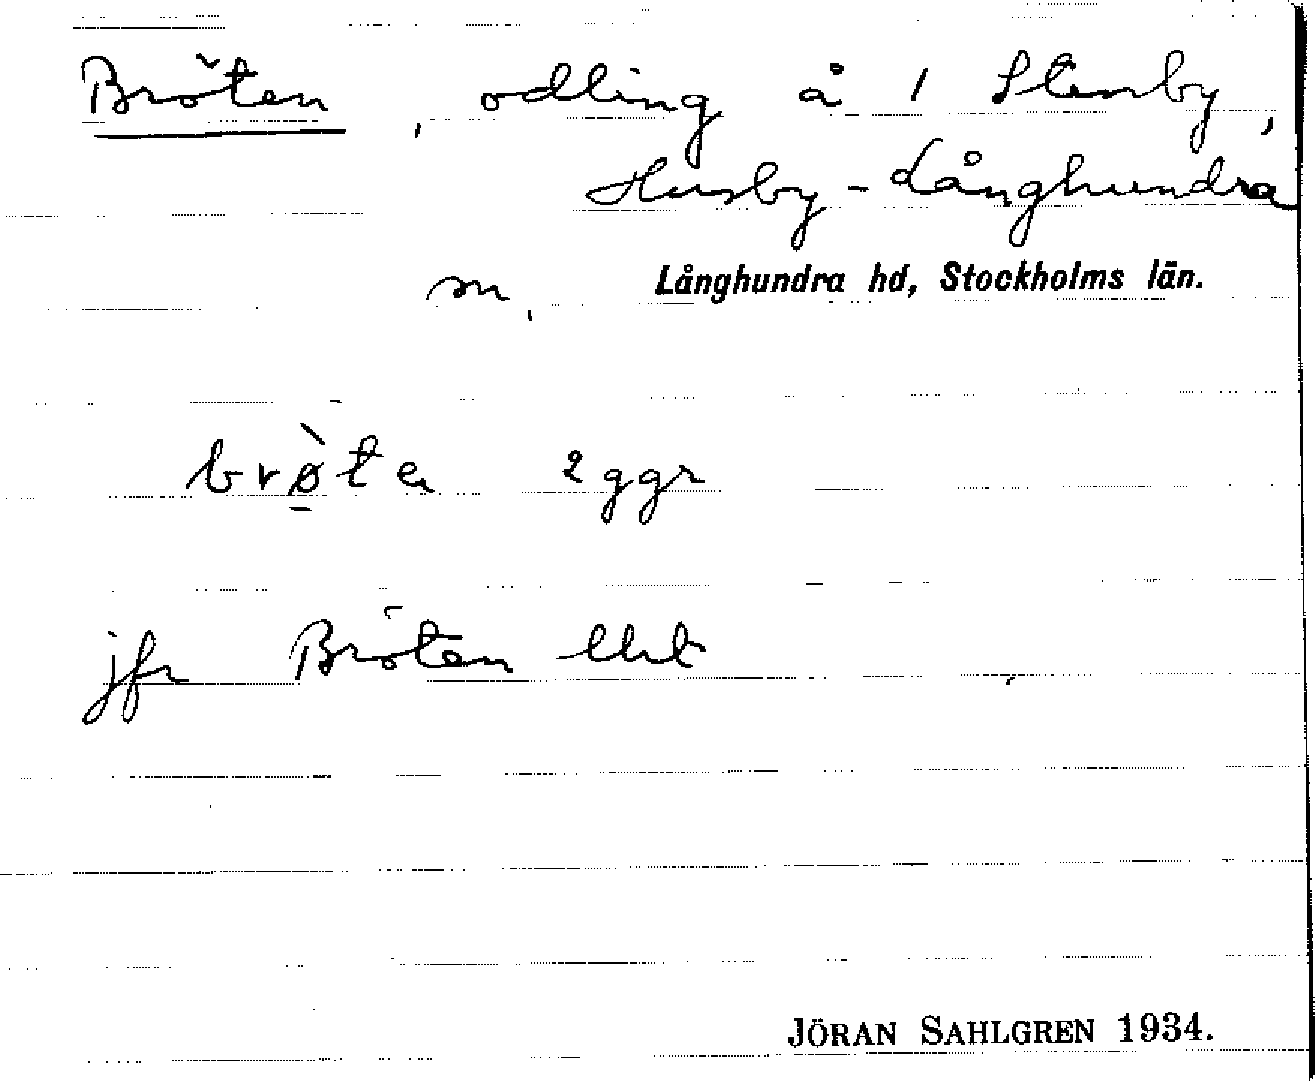 Bröten, odling å 1 Stenby,
Husby-Långhundra
sn, Långhundra hd, Stockholms län.
brø̀ten 2 ggr
jfr Bröten
JÖRAN SAHLGREN 1934.